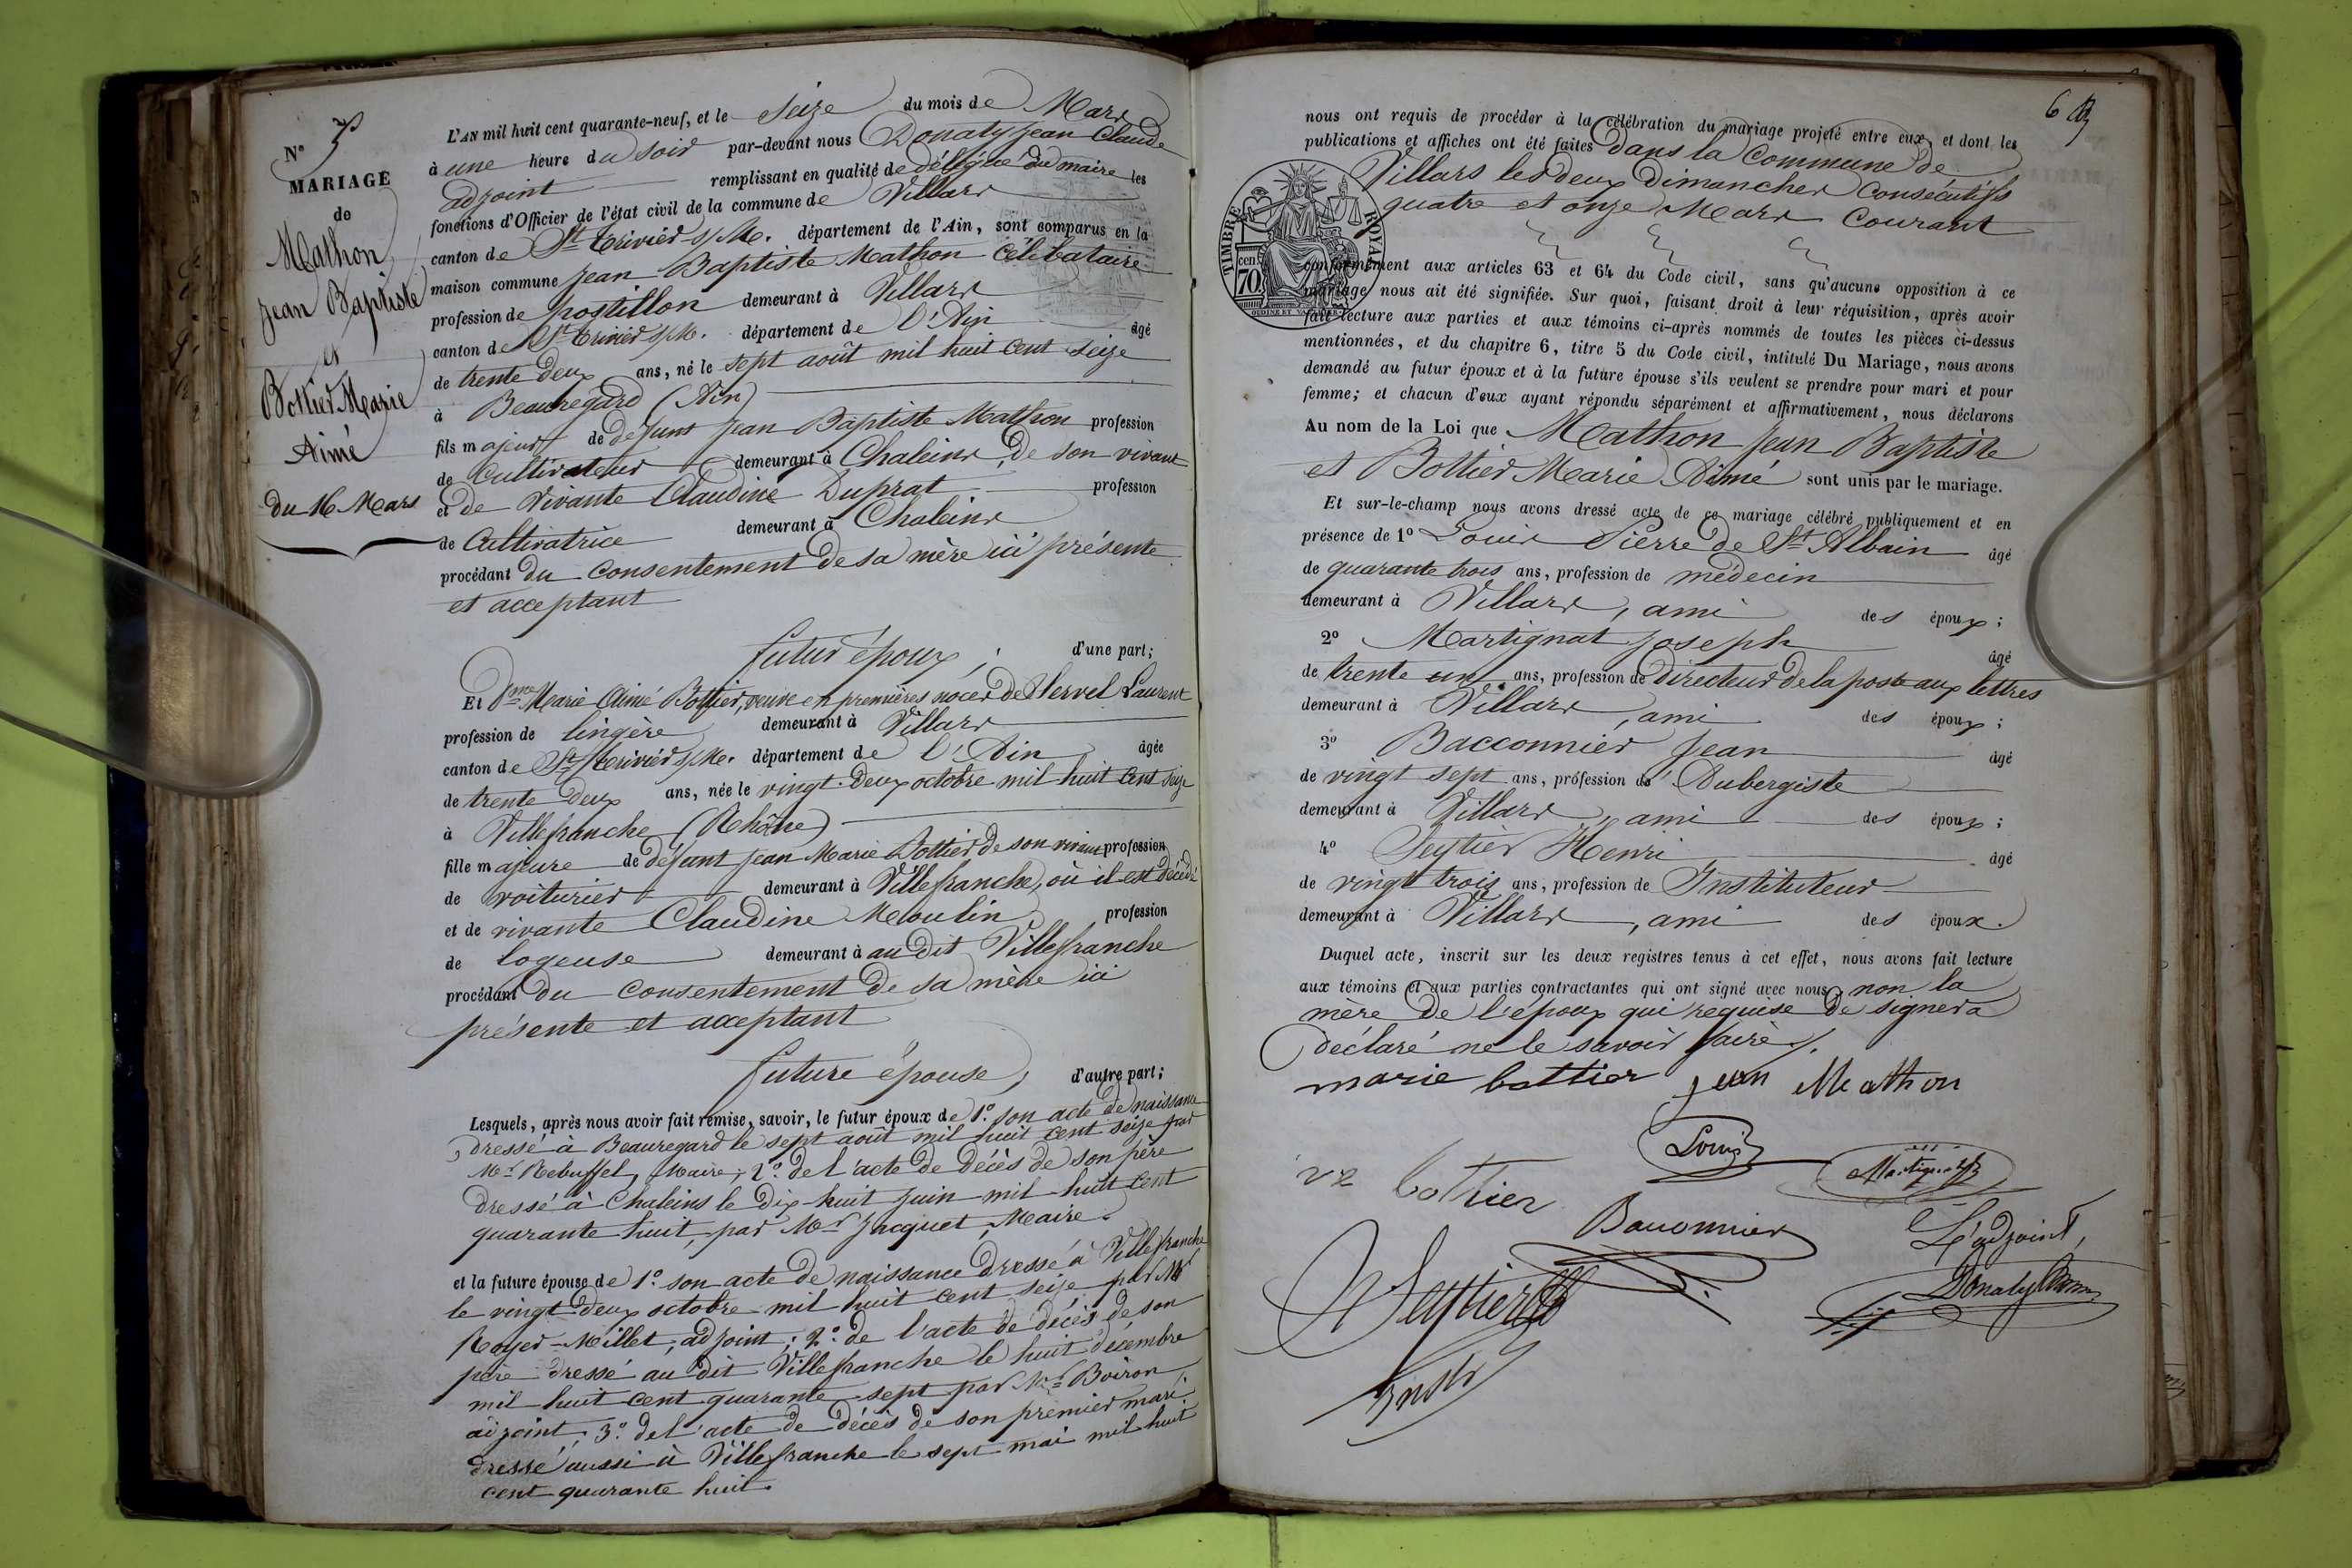 N° 5
MARIAGE
de
Mathon
Jean Baptiste
et
Bottier Marie
Aimé
du 16 Mars
L'AN mil huit cent quarante-neuf, et le Seize du mois de Mars
à une heure du soir par-devant nous Donaty Jean Claude
adjoint remplissant en qualité de délégué du maire les
fonctions d'Officier de l'état civil de la commune de Villars
canton de St Trivier s/M. département de l'Ain, sont comparus en la
maison commune Jean Baptiste Mathon célibataire
profession de postillon demeurant à Villars
canton de St Trivier s/M. département de l'Ain âgé
de trente deux ans, né le sept août mil huit cent seize
à Beauregard (Ain)
fils majeur de défunt Jean Baptiste Mathon profession
de Cultivateur demeurant à Chaleins, de son vivant
et de vivante Claudine Duprat profession
de Cultivatrice demeurant à Chaleins
procédant du consentement de sa mère ici présente
et acceptant
futur époux, d'une part;
Et Dme Marie Aimé Bottier, veuve en premières noces de Laurent
profession de lingère demeurant à Villars
canton de St Trivier s/M. département de l'Ain âgée
de trente deux ans, née le vingt-deux octobre mil huit cent seize
à Villefranche (Rhône)
fille majeure de défunt Jean Marie Bottier de son vivant profession
de voiturier demeurant à Villefranche, où il est décédé
et de vivante Claudine Moulin profession
de logeuse demeurant à au dit Villefranche
procédant du consentement de sa mère ici
présente et acceptant
future épouse, d'autre part;
Lesquels, après nous avoir fait remise, savoir, le futur époux de 1° son acte de naissance
dressé à Beauregard le sept août mil huit cent seize par
Mr Rebuffel, Maire; 2° de l'acte de décès de son père
dressé à Chaleins le dix-huit juin mil huit cent
quarante huit, par Mr Jacquet, Maire.
et la future épouse de 1° son acte de naissance dressé à Villefranche
le vingt-deux octobre mil huit cent seize par Mr
Royer-Millet, adjoint; 2° de l'acte de décès de son
père dressé au dit Villefranche le huit décembre
mil huit cent quarante-sept par Mr Boiron
adjoint; 3° de l'acte de décès de son premier mari
dressé aussi à Villefranche le sept mai mil huit
cent quarante huit.
6
nous ont requis de procéder à la célébration du mariage projeté entre eux, et dont les
publications et affiches ont été faites dans la commune de
Villars les deux Dimanches consécutifs
quatre et onze Mars courant
TIMBRE ROYAL
cen. 70
conformément aux articles 63 et 64 du Code civil, sans qu'aucune opposition à ce
mariage nous ait été signifiée. Sur quoi, faisant droit à leur réquisition, après avoir
fait lecture aux parties et aux témoins ci-après nommés de toutes les pièces ci-dessus
mentionnées, et du chapitre 6, titre 5 du Code civil, intitulé Du Mariage, nous avons
demandé au futur époux et à la future épouse s'ils veulent se prendre pour mari et pour
femme; et chacun d'eux ayant répondu séparément et affirmativement, nous déclarons
Au nom de la Loi que Mathon Jean Baptiste
et Bottier Marie Aimé sont unis par le mariage.
Et sur-le-champ nous avons dressé acte de ce mariage célébré publiquement et en
présence de 1° Louis Pierre de St Albain âgé
de quarante trois ans, profession de médecin
demeurant à Villars, ami des époux;
2° Martignat Joseph âgé
de trente un ans, profession de Directeur de la poste aux lettres
demeurant à Villars, ami des époux;
3° Bacconnier Jean âgé
de vingt sept ans, profession de Aubergiste
demeurant à Villars, ami des époux;
4° Seytier Henri âgé
de vingt trois ans, profession de Instituteur
demeurant à Villars, ami des époux.
Duquel acte, inscrit sur les deux registres tenus à cet effet, nous avons fait lecture
aux témoins et aux parties contractantes qui ont signé avec nous, non la
mère de l'époux qui requise de signer a
déclaré ne le savoir faire.
marie bottier jean Mathon
Louis
Martignat
ve bottier
Baconnier
L'adjoint,
H Seytier
Donaty
Instr